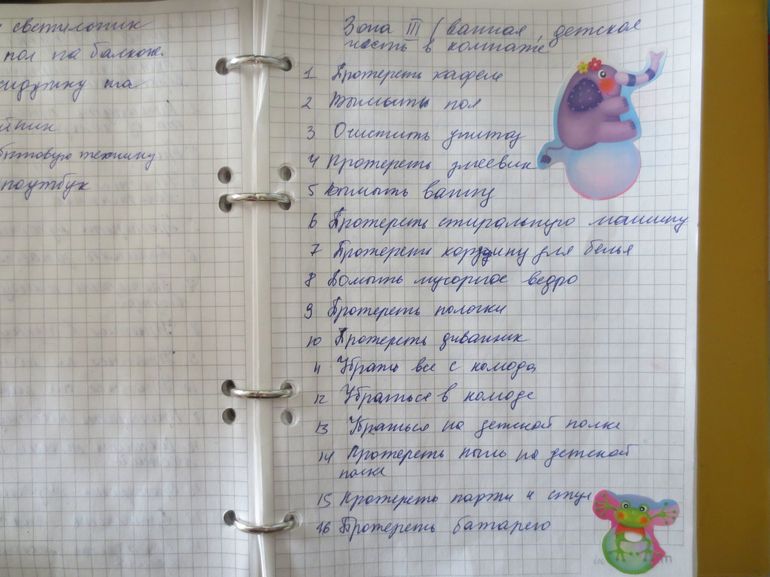 светильник
пол на балконе
бытовую технику
ноутбук
Зона III (ванная, детская
часть в комнате
1 Протереть кафель
2 Вымыть пол
3 Очистить унитаз
4 Протереть змеевик
5 Вымыть ванну
6 Протереть стиральную машину
7 Протереть корзину для белья
8 Вымыть мусорное ведро
9 Протереть полочки
10 Протереть диванчик
11 Убрать все с комода
12 Убраться в комоде
13 Убраться на детской полке
14 Протереть пыль на детской
полке
15 Протереть парти и стул
16 Протереть батарею